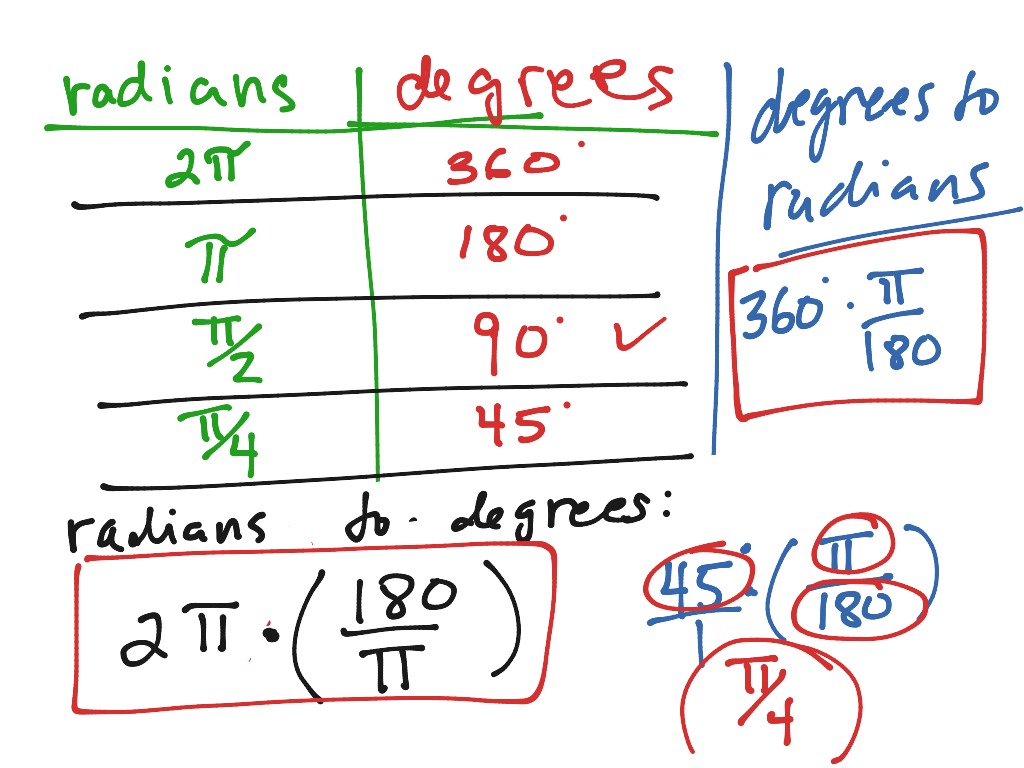 radians degrees
2π 360°
π 180°
π/2 90° ✓
π/4 45°
degrees to
radians
360° · π/180
radians to degrees:
2π · (180/π)
45°/1 · (π/180)
(π/4)